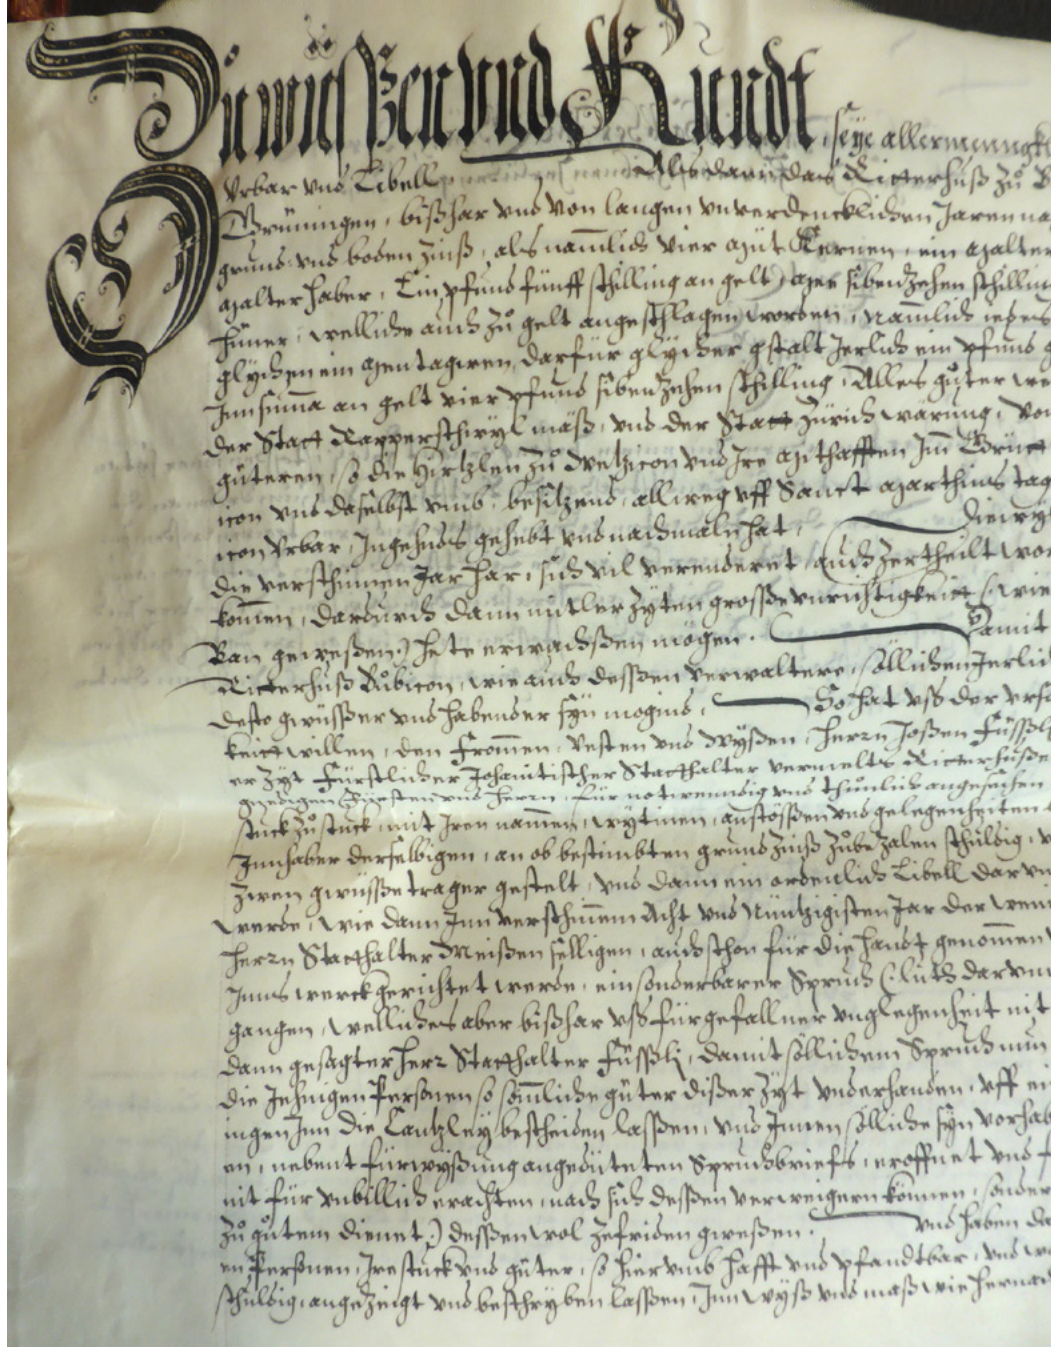 Zů wüssen vnd Kundt, seye allermenngk
Vrbar vnd Libell Als dann das Ritterhuß zů B
Grüningen, bißhar vnd von langen vnverdencklichen Jaren na
grund vnd boden Zinß, als namlich vier Müt Kernen, ein Malter
Malter haber, Ein pfund fünff schilling an gelt, mer sibenzehen schilling
hüner, welliche auch zů gelt angeschlagen worden, Namlich iedes
glychen ein Mentagwen, darfür glycher gstalt Jerlich ein pfund g
Inn summa an gelt vier pfund sibenzehen schilling, Alles gůter we
der Statt Rapperschwyl mäß, vnd der Statt Zürich warung, Von
gůteren, so die Hirtzlen zů Wetzicon vnd Jre Mithafften Im Grüt
icon vnd daselbst vmb, besitzend, allweg vff Sanct Marthins tag
icon Vrbar, Ingehuds gehebt vnd nachmaln hat, Diewyl
die verschinnen Jar har, sich vil verenderet, auch zertheilt wor
kommen, dardurch dann mitler zyten grosse vnrichtigkeit (wie
Ban geweßen) hete erwachßen mögen. Damit
Ritterhuß Bůbicon, wie auch desßen verwaltere, söllichen Jerlich
desto gwüsser vnd habender syn mogind, So hat vss der vrsa
keit willen, den Frommen, Vesten vnd Wyßen, herrn Joßen Füsßli
er Zyt Fürstlicher Johanitischer Statthalter vermelts Ritterhuße
gnedigen Fürsten vnd herrn, für notwenndig vnd thůnlich angesechen
stuck zů stuck, mit Iren nammen, wytinen, anstösßen vnd gelegenheiten
Innhaber derselbigen, an ob bestimbten grund Zinß zůbezalen schuldig, v
Zwen gwüsße trager gestelt, vnd dann ein ordenlich Libell darvm
werde, wie dann Inn verschinnem Acht vnd Nüntzigisten Jar der weni
herrn Statthalter Meißen selligen, auch schon für die hand genommen
Inns werck gerichtet werde, ein sonderbarer Spruch (luth darvm
gangen, welliches aber bißhar vss fürgefallner vnglegenheit nit
dann gesagter herr Statthalter Füsßli, damit söllichem Spruch nun
die Jehnigen Personen so sömliche gůter dißer Zyt vnderhanden, vff ei
ingen Inn die Cantzley bescheiden lasßen, vnd Innen sölliche syn vorhab
en, nebent fürwyßung angedüteten Spruchbriefs, eroffnet vnd f
nit für vnbillich erachten, nach sich desßen verweigern können, sonder
zů gůtem dienet,) desßen wol zefriden gweßen. vnd haben da
en Personen, Ire stuck vnd gůter, so hiervmb hafft vnd pfandtbar, vnd w
schuldig, angezeigt vnd beschryben lasßen, Inn wyß vnd maß wie hernach